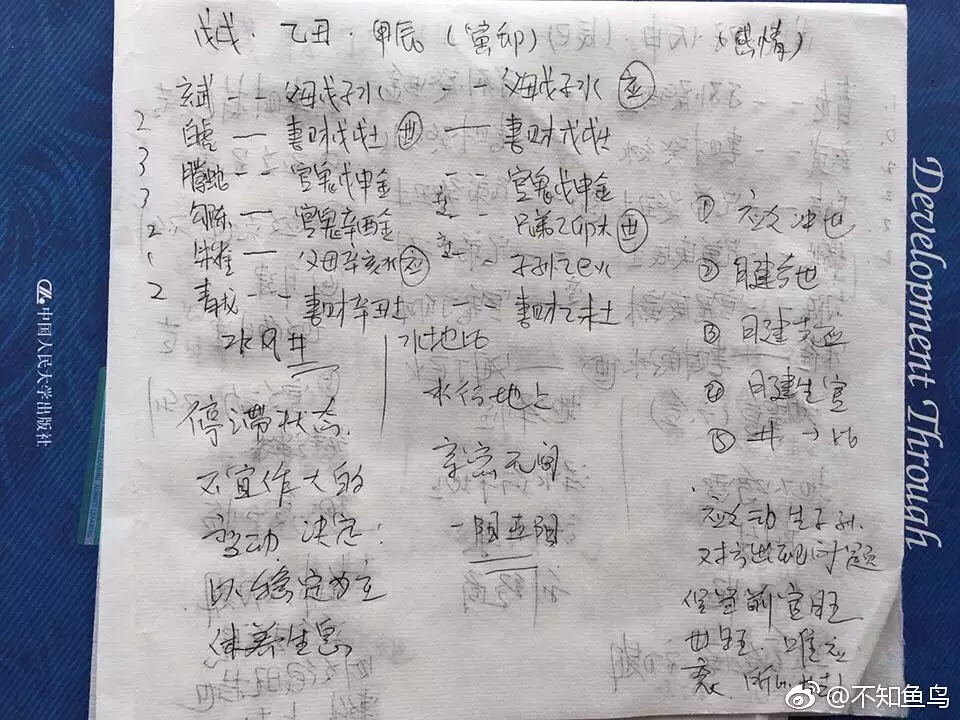 戊戌·乙丑·甲辰(寅卯) (感情)
玄武 -- 父母戊子水 -- 父母戊子水 应
2 白虎 — 妻財戊戌土 世 — 妻財戊戌土
3 腾蛇 -- 官鬼戊申金 -- 官鬼戊申金
3 勾陈 — 官鬼辛酉金 -- 兄弟乙卯木 世
2 朱雀 — 父母辛亥水 应 -- 子孙乙巳火
2 青龙 -- 妻財辛丑土 — 妻財乙未土
水风井
水地比
停滞状态
不宜作大的
变动 决定:
以稳定为主
休养生息
水行地上
亲密无间
一阳五阴
① 应爻冲世
② 日建合世
③ 日建克应
④ 日建生官
⑤ 井→比
应爻动 生子孙
对方出现问题
但官前官旺
世旺 唯应
衰
Development Through
中国人民大学出版社
@不知鱼鸟